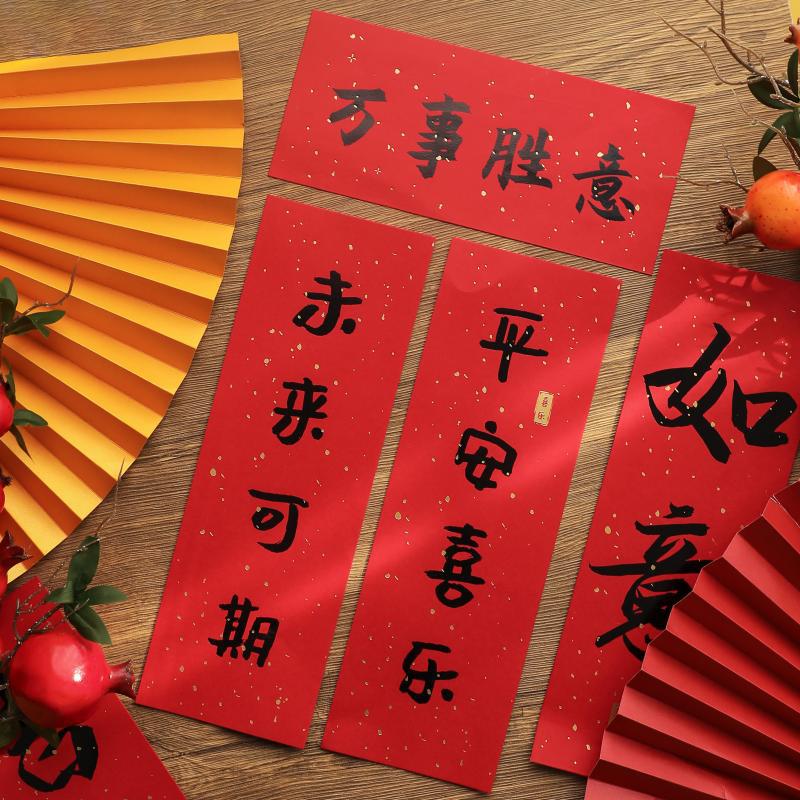 万事胜意
未来可期
平安喜乐
喜乐
如意